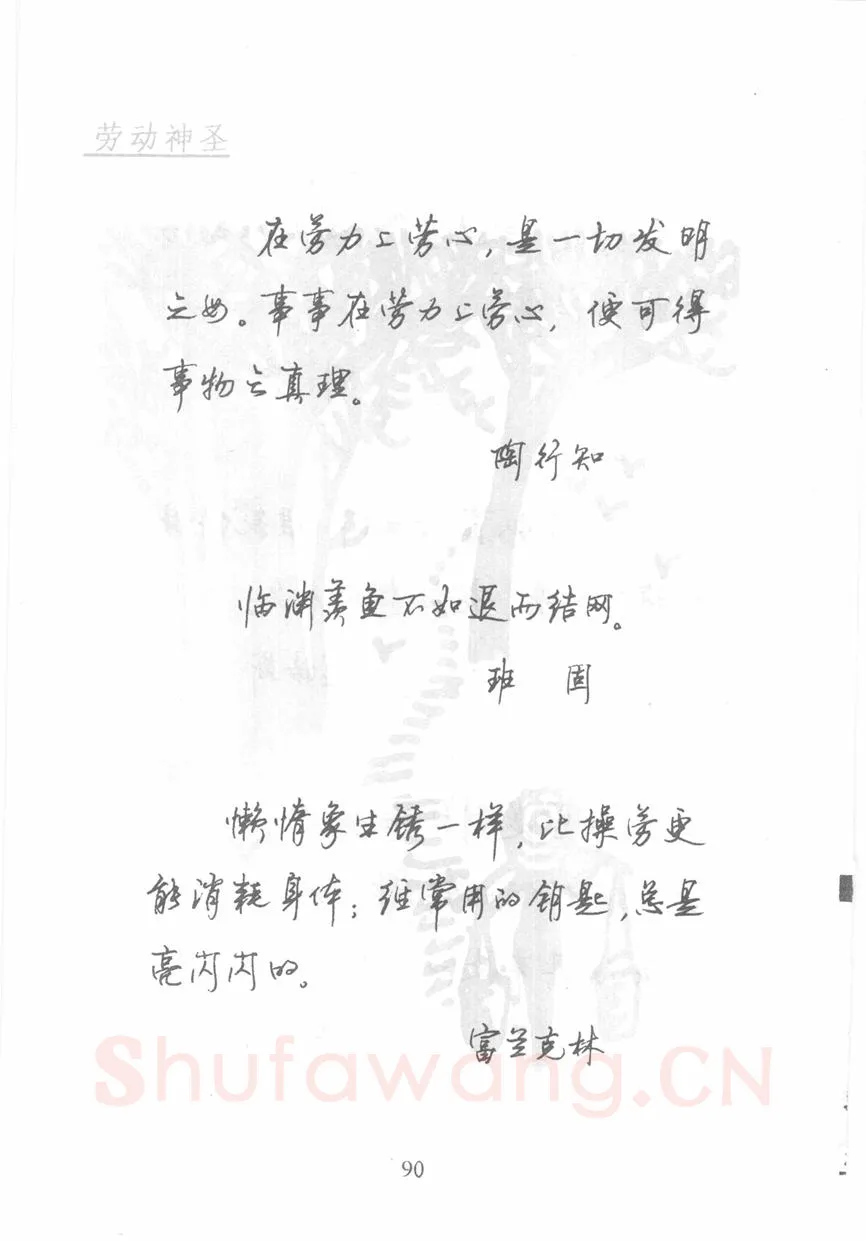 劳动神圣
在劳力上劳心，是一切发明
之母。事事在劳力上劳心，便可得
事物之真理。
陶行知
临渊羡鱼不如退而结网。
班 固
懒惰象生锈一样，比操劳更
能消耗身体；经常用的钥匙，总是
亮闪闪的。
富兰克林
Shufawang.CN
90